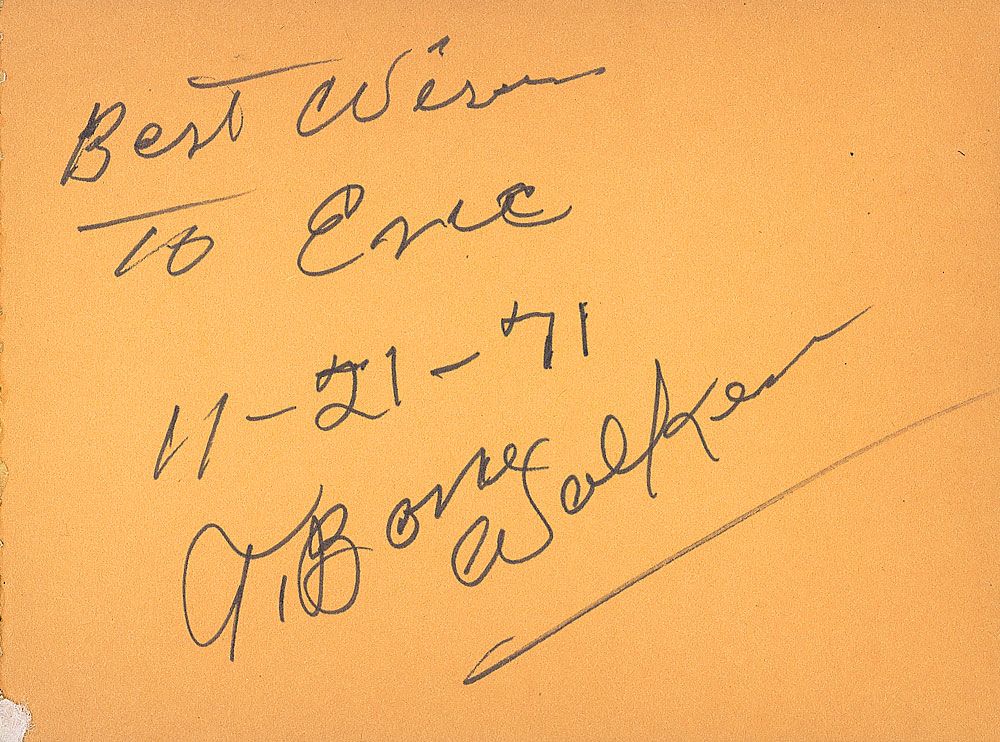 Best Wishes
To Eric
11-21-71
T. Bone Walker